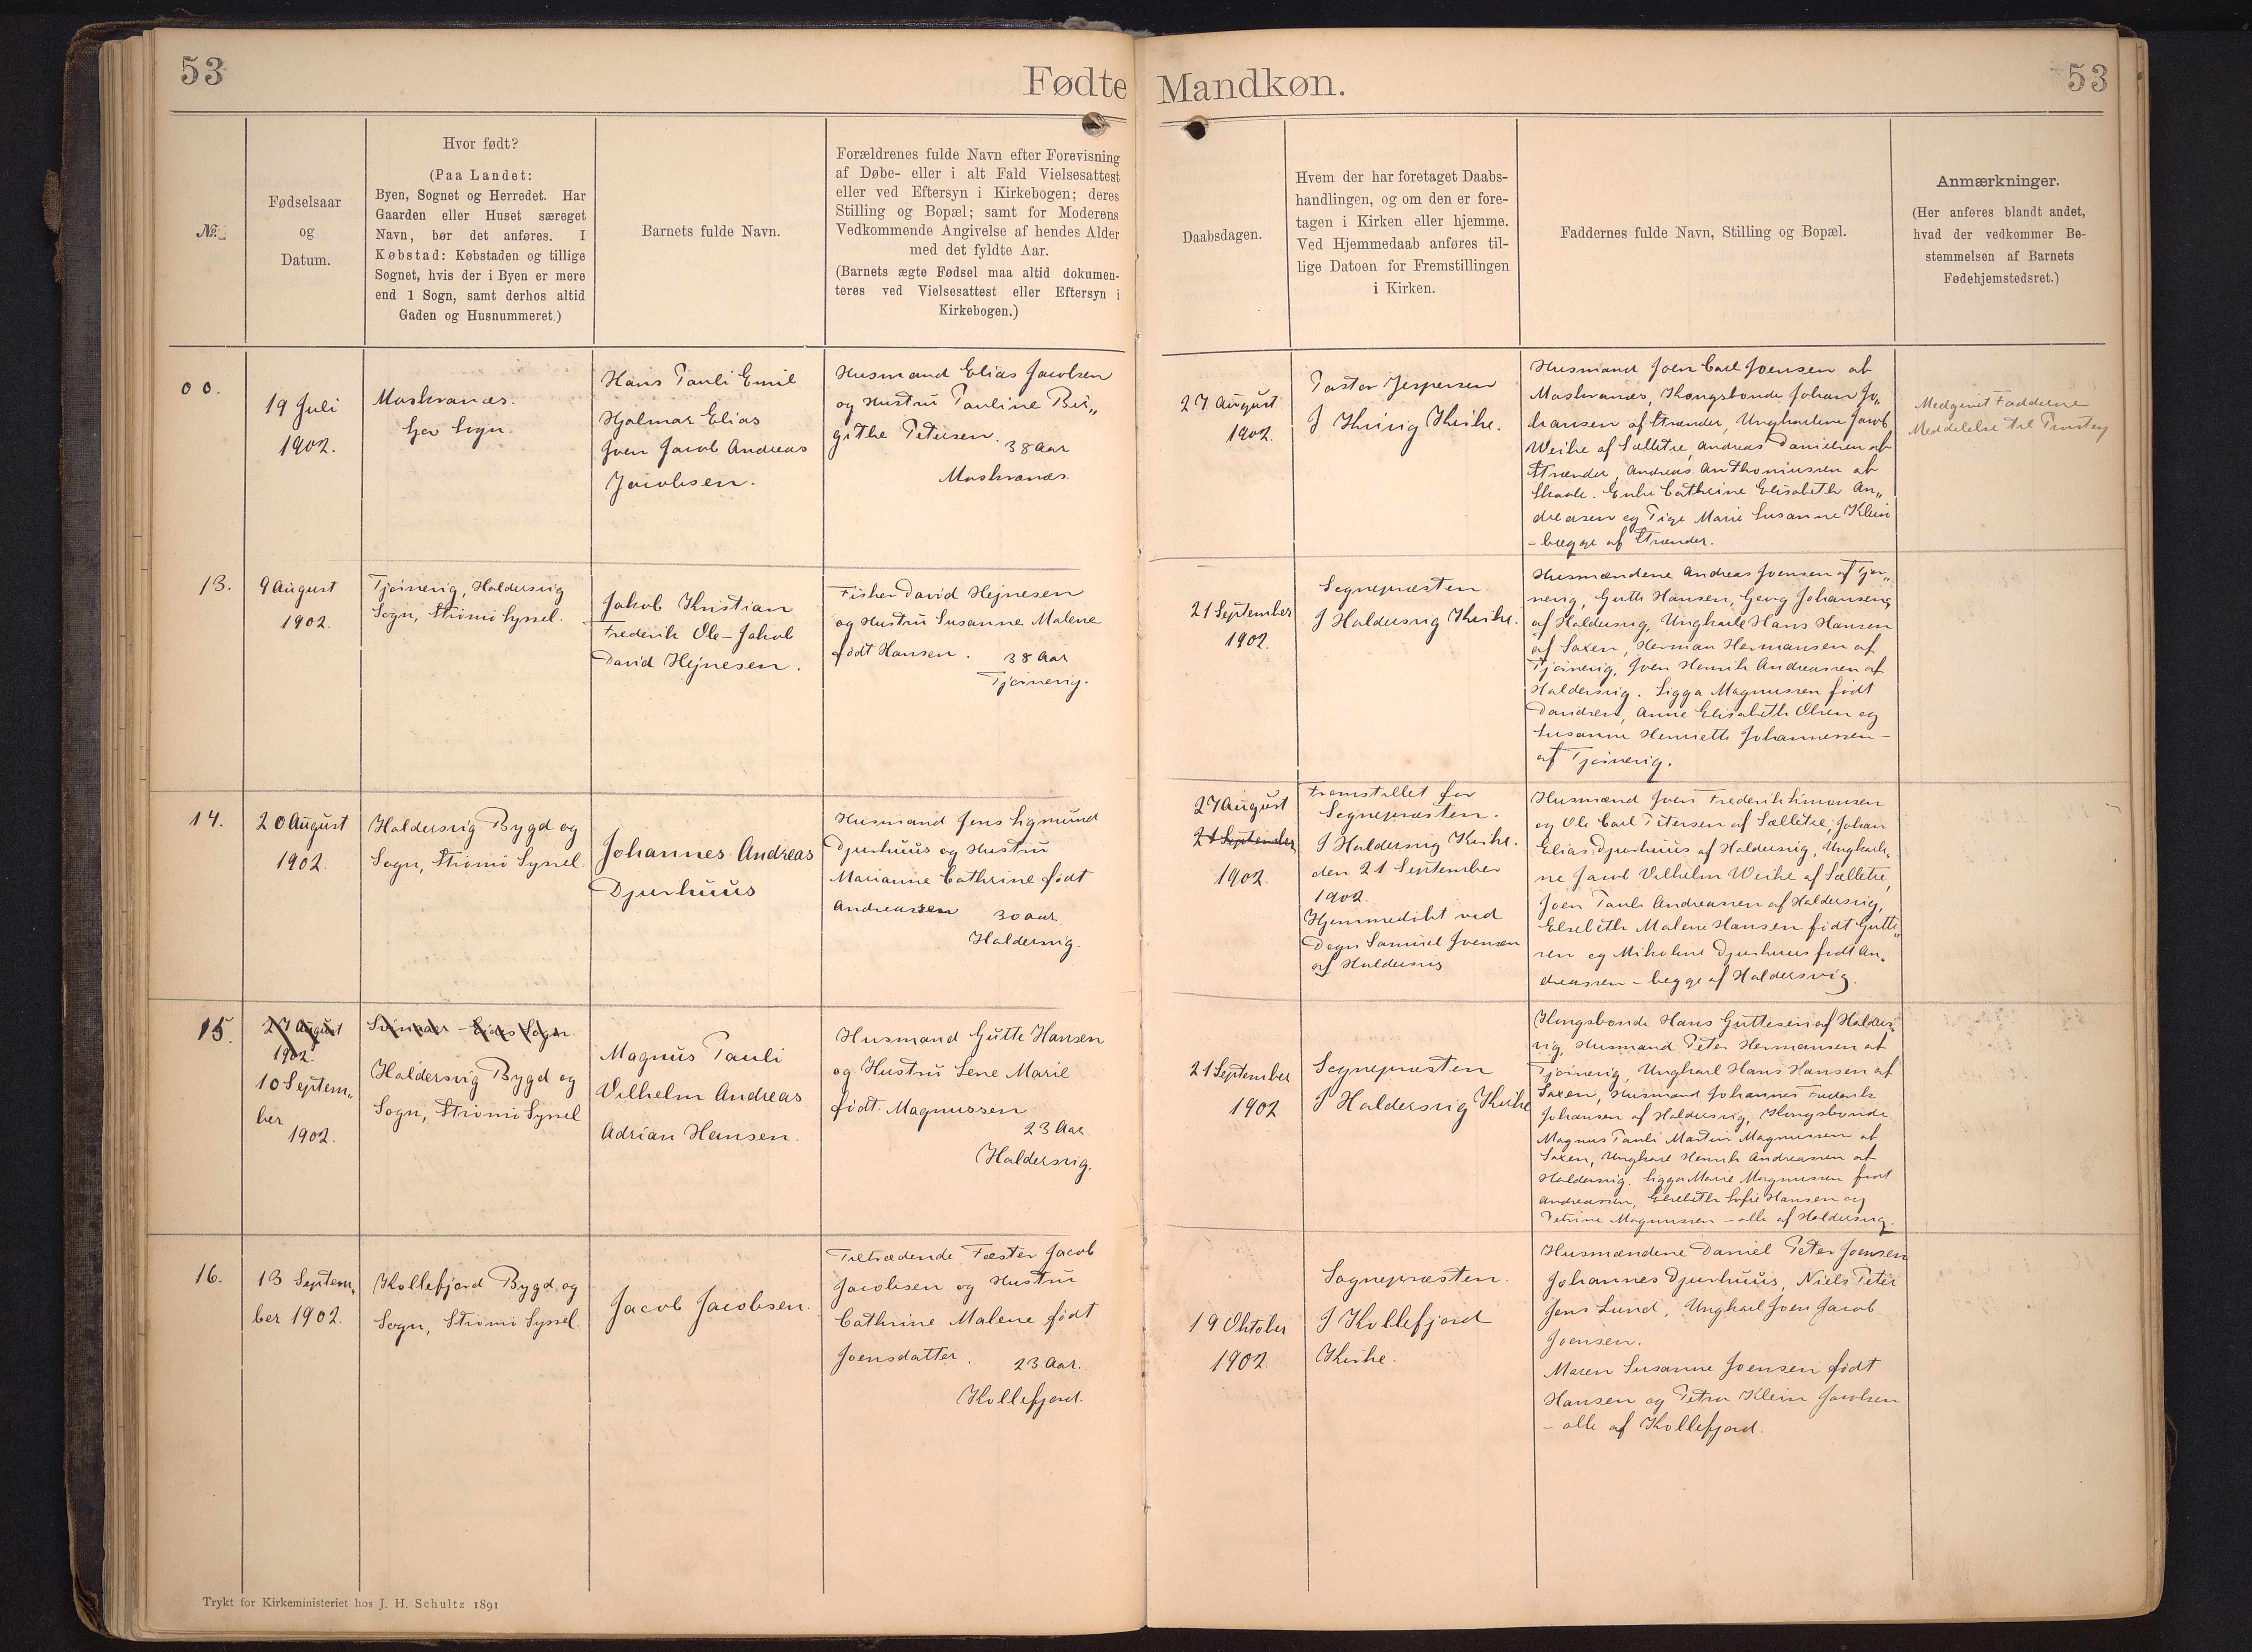 53
Fødte
Mandkøn.
53
№
Fødselsaar
og
Datum.
Hvor født?
(Paa Landet:
Byen, Sognet og Herredet. Har
Gaarden eller Huset særeget
Navn, bør det anføres. I
Købstad: Købstaden og tillige
Sognet, hvis der i Byen er mere
end 1 Sogn, samt derhos altid
Gaden og Husnummeret.)
Barnets fulde Navn.
Forældrenes fulde Navn efter Forevisning
af Døbe- eller i alt Fald Vielsesattest
eller ved Eftersyn i Kirkebogen; deres
Stilling og Bopæl; samt for Moderens
Vedkommende Angivelse af hendes Alder
med det fyldte Aar.
(Barnets ægte Fødsel maa altid dokumen-
teres ved Vielsesattest eller Eftersyn i
Kirkebogen.)
Daabsdagen.
Hvem der har foretaget Daabs-
handlingen, og om den er fore-
tagen i Kirken eller hjemme.
Ved Hjemmedaab anføres til-
lige Datoen for Fremstillingen
i Kirken.
Faddernes fulde Navn, Stilling og Bopæl.
Anmærkninger.
(Her anføres blandt andet,
hvad der vedkommer Be-
stemmelsen af Barnets
Fødehjemstedsret.)
00.
19 Juli
1902.
Moskvanæs.
Sogn.
Hans Pauli Emil
Hjalmar Elias
Joen Jacob Andreas
Jacobsen.
Husmand Elias Jacobsen
og Hustru Pauline Bir„
githe Petersen.
38 Aar
Moskvanæs.
27 August
1902.
Pastor Jespersen
I Kvivig Kirke.
Husmand Joen Carl Joensen af
Moskvanæs, Kongsbonde Johan Jo„
hansen af Strænder, Ungkarlene Jacob
Weihe af Sælletre, Andreas Danielsen af
Strænder, Andreas Anthoniussen af
Skaale. Enke Cathrine Elisabeth An„
dreasen og Pige Marie Susanne Klein
- begge af Strænder.
Medgivet Fadderne
Meddelelse til
13.
9 August
1902.
Tjørnevig, Haldersvig
Sogn, Strømø Syssel.
Jakob Kristian
Frederik Ole-Jakob
David Hejnesen.
Fisker David Hejnesen
og Hustru Susanne Malene
født Hansen.
38 Aar
Tjørnevig.
21 September
1902.
Sognepræsten
I Haldersvig Kirke.
Husmændene Andreas Joensen af Tjør„
nevig, Gutte Hansen, Georg Johansen
af Haldersvig, Ungkarle Hans Hansen
af Saxen, Herman Hermansen af
Tjørnevig, Joen Henrik Andreasen af
Haldersvig. Sigga Magnussen født
Davidsen, Anne Elisabeth Olsen og
Susanne Henriette Johannessen -
af Tjørnevig.
14.
20 August
1902.
Haldersvig Bygd og
Sogn, Strømø Syssel.
Johannes Andreas
Djurhuus
Husmand Jens Sigmund
Djurhuus og Hustru
Marianne Cathrine født
Andreassen
30 Aar.
Haldersvig.
27 August
21 September
1902.
Fremstillet for
Sognepræsten.
I Haldersvig Kirke.
den 21 September
1902.
Hjemmedøbt ved
Degn Samuel Joensen
af Haldersvig
Husmænd Joen Frederik Simonsen
og Ole Carl Petersen af Sælletre, Johan
Elias Djurhuus af Haldersvig, Ungkarle„
ne Jacob Vilhelm Weihe af Sælletre,
Joen Pauli Andreassen af Haldersvig,
Elsebeth Malene Hansen født Gutte„
sen og Mikoline Djurhuus født An„
dreassen - begge af Haldersvig.
15.
27 August
1902.
10 Septem„
ber
1902.
Svinaær - Eides Sogn.
Haldersvig Bygd og
Sogn, Strømø Syssel
Magnus Pauli
Vilhelm Andreas
Adrian Hansen.
Husmand Gutte Hansen
og Hustru Lene Marie
født Magnussen
23 Aar
Haldersvig.
21 September
1902
Sognepræsten
I Haldersvig Kirke
Kongsbonde Hans Guttesen af Halders„
vig, Husmand Peter Hermansen af
Tjørnevig, Ungkarl Hans Hansen af
Saxen, Husmand Johannes Frederik
Johansen af Haldersvig, Kongsbonde
Magnus Pauli Martin Magnussen af
Saxen, Ungkarl Henrik Andreassen af
Haldersvig. Sigga Marie Magnussen født
Andreassen, Elsebeth Sofie Hansen og
Petrine Magnussen - alle af Haldersvig.
16.
13 Septem„
ber 1902.
Kollefjord Bygd og
Sogn, Strømø Syssel.
Jacob Jacobsen.
Tiltrædende Fæster Jacob
Jacobsen og Hustru
Cathrine Malene født
Joensdatter.
23 Aar.
Kollefjord.
19 Oktober
1902.
Sognepræsten.
I Kollefjord
Kirke.
Husmændene Daniel Peter Joensen
Johannes Djurhuus, Niels Peter
Jens Lund, Ungkarl Joen Jacob
Joensen.
Maren Susanne Joensen født
Hansen og Petra Klein Jacobsen
- alle af Kollefjord.
Trykt for Kirkeministeriet hos J. H. Schultz 1891